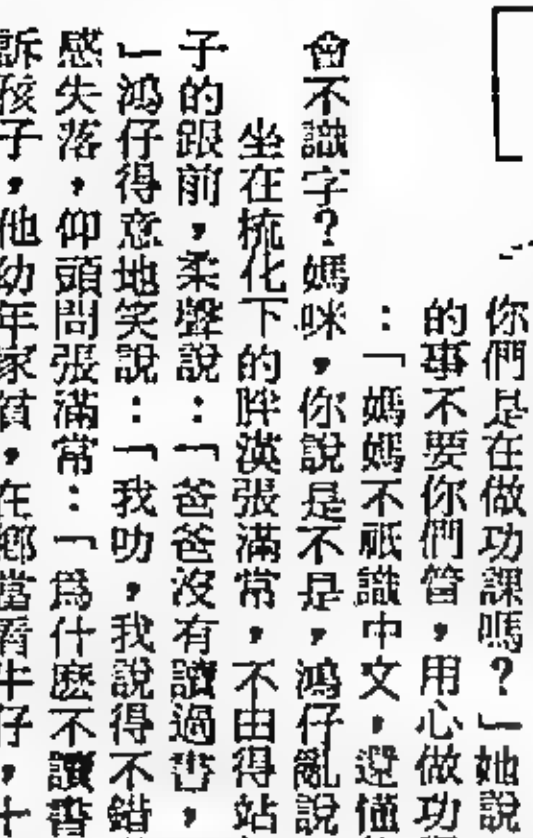 你們是在做功課嗎？」她說
的事不要你們管，用心做功
：「媽媽不祇識中文，還懂
會不識字？媽咪，你說是不是，鴻仔亂說
坐在梳化下的胖漢張滿常，不由得站
子的跟前，柔聲說：「爸爸沒有讀過書，
」鴻仔得意地笑說：「我叻，我說得不錯
感失落，仰頭問張滿常：「爲什麽不讀書
訴孩子，他幼年家貧，在鄉當看牛仔，十